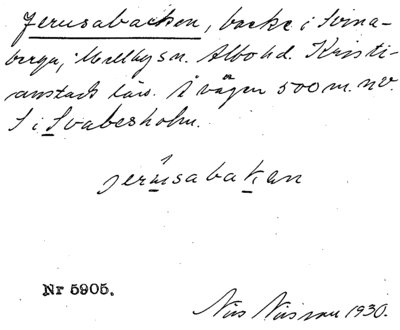 Jerusabacken, backe i Svina-
berga, Mellby sn. Albo hd. Kristi-
anstads län. Å vägen 500 m. nv.
S i Svabesholm.
jerúsabakan
Nr 5905.
Nils Nilsson 1930.